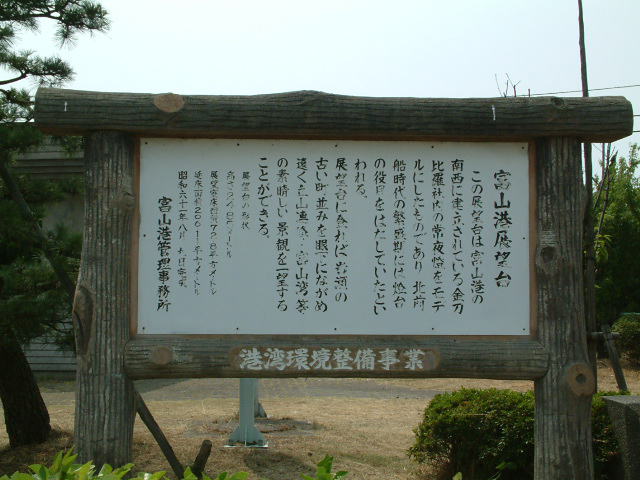 富山港展望台
この展望台は富山港の
南西に建立されている金刀
比羅社内の常夜燈をモデ
ルにしたものであり、北前
船時代の繁盛期には燈台
の役目をはたしていたとい
われる。
展望台に登れば岩瀬の
古い町並みを眼下にながめ
遠く立山連峰・富山湾等
の素晴しい景観を一望する
ことができる。
展望台の形状
高さ
展望室床
延床面積
昭和六十一年八月
富山港管理事務所
港湾環境整備事業